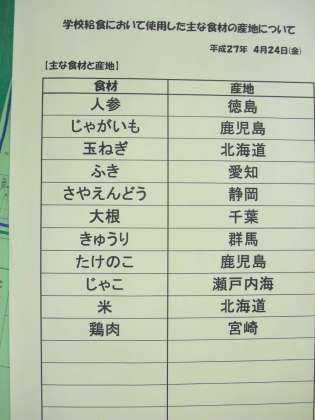 学校給食において使用した主な食材の産地について
平成27年 4月24日(金)
【主な食材と産地】
食材 産地
人参 徳島
じゃがいも 鹿児島
玉ねぎ 北海道
ふき 愛知
さやえんどう 静岡
大根 千葉
きゅうり 群馬
たけのこ 鹿児島
じゃこ 瀬戸内海
米 北海道
鶏肉 宮崎